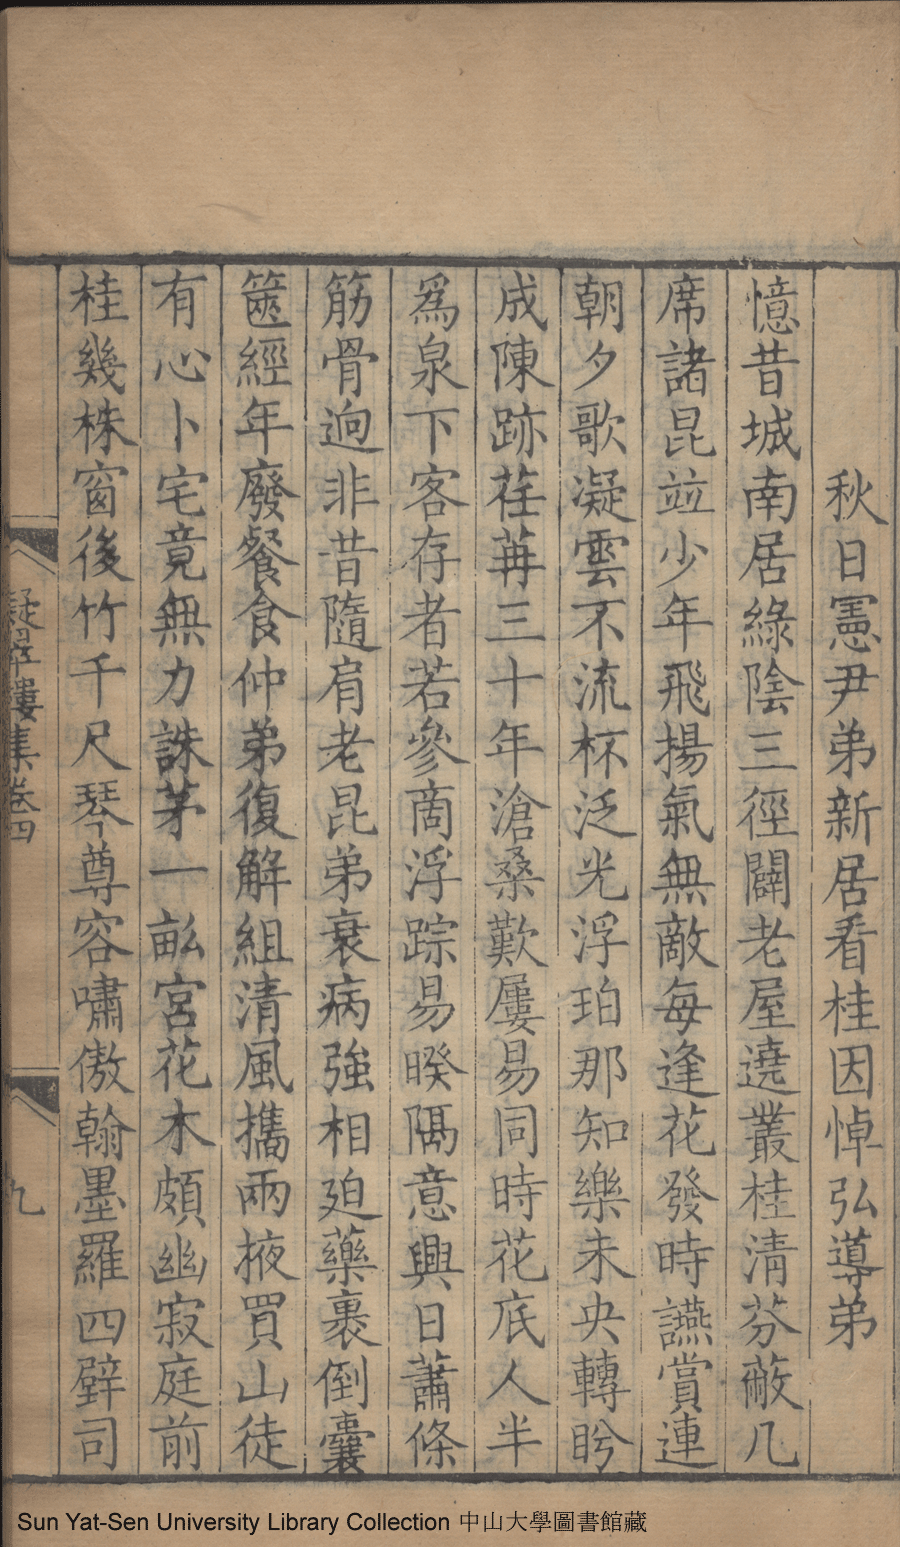 秋日憲尹弟新居看桂因悼弘導弟
憶昔城南居綠陰三徑闢老屋遶叢桂清芬蔽几
席諸昆竝少年飛揚氣無敵每逢花發時讌賞連
朝夕歌凝雲不流杯泛光浮珀那知樂未央轉盻
成陳跡荏苒三十年滄桑歎屢易同時花底人半
爲泉下客存者若參商浮踪易暌隔意興日蕭條
筋骨逈非昔隨肩老昆弟衰病強相廹藥裹倒囊
篋經年廢餐食仲弟復解組清風攜兩掖買山徒
有心卜宅竟無力誅茅一畝宮花木頗幽寂庭前
桂幾株窗後竹千尺琴尊容嘯傲翰墨羅四壁司
凝翠樓集卷四
九
Sun Yat-Sen University Library Collection 中山大學圖書館藏